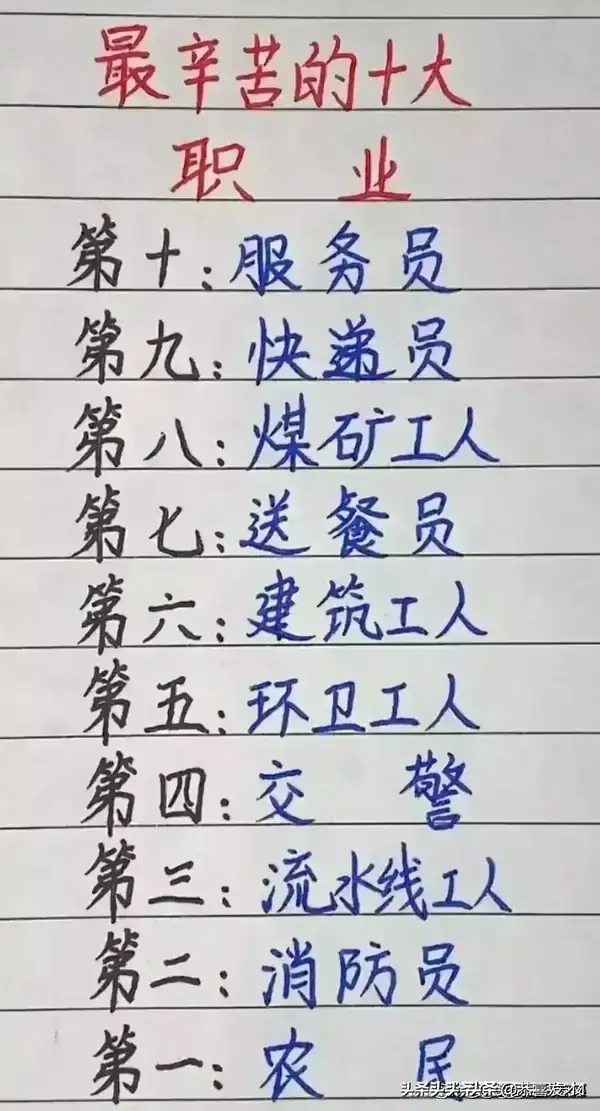 最辛苦的十大
职业
第十:服务员
第九:快递员
第八:煤矿工人
第七:送餐员
第六:建筑工人
第五:环卫工人
第四:交警
第三:流水线工人
第二:消防员
第一:农民